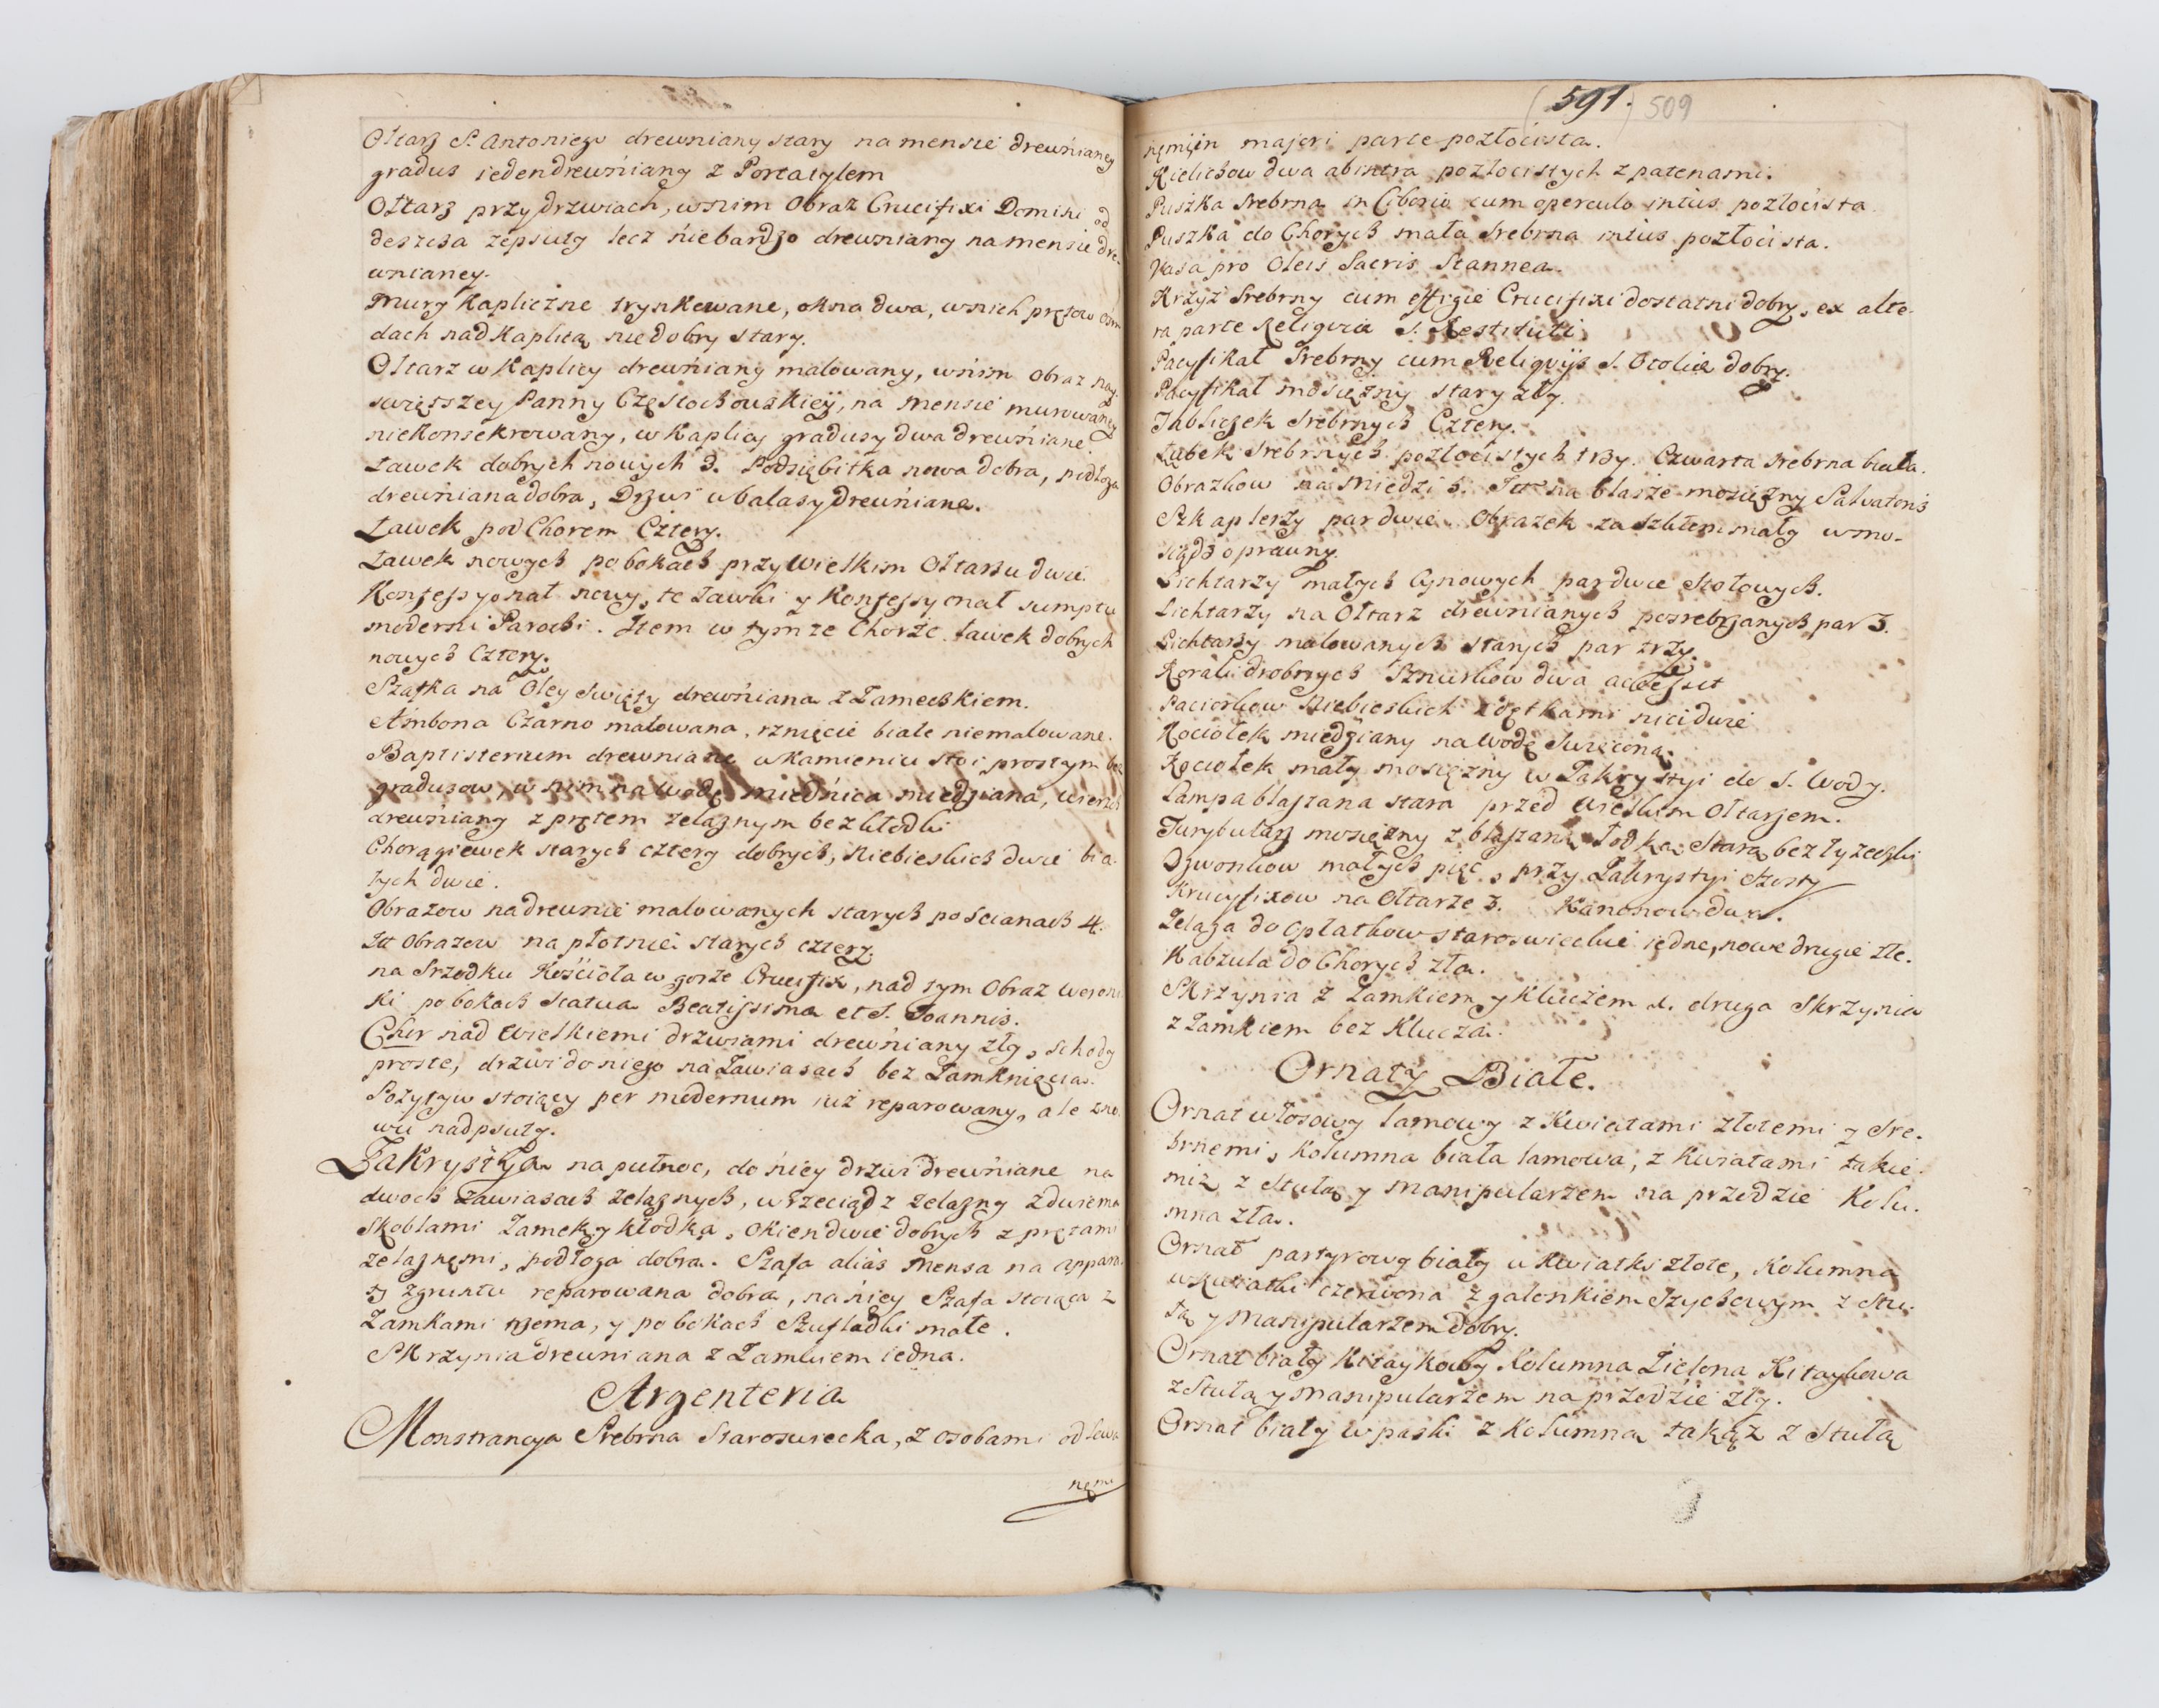 Ołtarz S. Antoniego drewniany stary na mensie drewnianey
gradus ieden drewniany z Portatylem
Ołtarz przy drzwiach, w nim Obraz Crucifixi Domini od
deszcza zepsuty lecz niebardzo drewniany na mensie dre-
wnianey.
Mury Kapliczne trynkowane, okna dwa, w nich prętow osm
dach nad Kaplicą niedobry stary.
Ołtarz w Kaplicy drewniany malowany, w nim obraz nay-
swiętszey Panny Częstochowskiey, na mensie murowaney
niekonsekrowany, w Kaplicy gradusy dwa drewniane.
Ławek dobrych nowych 3. Podsiębitka nowa dobra, podłoga
drewniana dobra, Drzwi w balasy drewniane.
Ławek pod Chorem Cztery.
Ławek nowych po bokach przy Wielkim Ołtarzu dwie.
Konfessyonał nowy, te Ławki y Konfessyonał sumptu
moderni Parochi. Item w tymże Chorze ławek dobrych
nowych Cztery.
Szafka na Oley Swięty drewniana z Zameczkiem.
Ambona Czarno malowana, rznięcie białe niemalowane.
Baptisterium drewniane w Kamieniu stoi prostym bez
gradusow, w nim na wodę miednica miedziana, wierzch
drewniany z prętem zelaznym bez kłodki
Chorągiewek starych cztery dobrych, Niebieskich dwie bia-
łych dwie.
Obrazow na drewnie malowanych starych po Scianach 4.
Itt Obrazow na płotnie starych cztery.
na Srzodku Kościoła w gorze Crucifix, nad tym Obraz Weroni-
ki po bokach Statua Beatissima et S. Joannis.
Chor nad Wielkiemi drzwiami drewniany zły, schody
proste, drzwi do niego na Zawiasach bez Zamknięcia.
Pozytyw stoiący per modernum iuż reparowany, ale zno-
wu nadpsuty.
Zakrystya na pułnoc, do niey drzwi drewniane na
dwoch zawiasach zelaznych, wrzeciądz zelazny z dwiema
Skoblami Zamek y kłodka, okien dwie dobrych z prętami
zelaznemi, podłoga dobra. Szafa alias Mensa na appara-
ty zgruntu reparowana dobra, na niey Szafa stoiąca z
Zamkami trzema, y po bokach Szufladki małe.
Skrzynia drewniana z Zamkiem iedna.
Argenteria
Monstrancya Srebrna Staroswiecka, z osobami odlewa
nemi
591. 509
nemi in majori parte pozłocista.
Kielichow dwa ab intra pozłocistych z patenami.
Puszka Srebrna in Ciborio cum operculo intus pozłocista
Puszka do Chorych mała Srebrna intus pozłocista.
Vasa pro Oleis Sacris Stannea.
Krzyż Srebrny cum effigie Crucifixi dostatni dobry, ex alte-
ra parte Reliqvia S. Restituti
Pacyfikał Srebrny cum Reliqvijs S. Otolia dobry.
Pacyfikał mosiężny stary zły.
Tabliczek Srebrnych Cztery.
Ząbek Srebrnych pozłocistych trzy. Czwarta Srebrna biała.
Obrazkow na Miedzi 3. Itt na blasze mosiężny Salvatoris
Szkaplerzy par dwie. Obrazek za Szkłem mały w mo-
siądz oprawny.
Lichtarzy małych Cynowych par dwie Stołowych.
Lichtarzy na Ołtarz drewnianych posrebrzanych par 3.
Lichtarzy malowanych starych par trzy.
Korali drobnych Sznurkow dwa accessit
Paciorkow Niebieskich z dętkami nici dwie
Kociołek miedziany na Wodę Swięconą.
Kociołek mały mosiężny w Zakrystyi do S. Wody.
Lampa blaszana stara przed Wielkim Ołtarzem.
Turybularz mosiężny z blaszaną Łodką Starą bez łyzeczki
Dzwonkow małych pięć, przy Zakrystyi Szosty
Krucyfixow na Ołtarze 3. Kanonow dwa.
Zelaza do opłatkow staroswieckie iedne, nowe drugie złe.
Kabzula do Chorych zła.
Skrzynia z Zamkiem y Kluczem 1. druga Skrzynia
z Zamkiem bez Klucza.
Ornaty Białe.
Ornat włosowy lamowy z Kwiatami złotemi y Sre-
brnemi, Kolumna biała lamowa, z Kwiatami takie-
miż z Stułą y Manipularzem na przedzie Kolu-
mna zła.
Ornat partyrowy biały w Kwiatki złote, Kolumna
w Kwiatki czerwona z galonkiem Szychowym z Stu-
łą y Manipularzem dobry.
Ornat biały Kitaykowy Kolumna Zielona Kitaykowa
z Stułą y Manipularzem na przedzie zły.
Ornat biały w paski z Kolumną takąż z Stułą